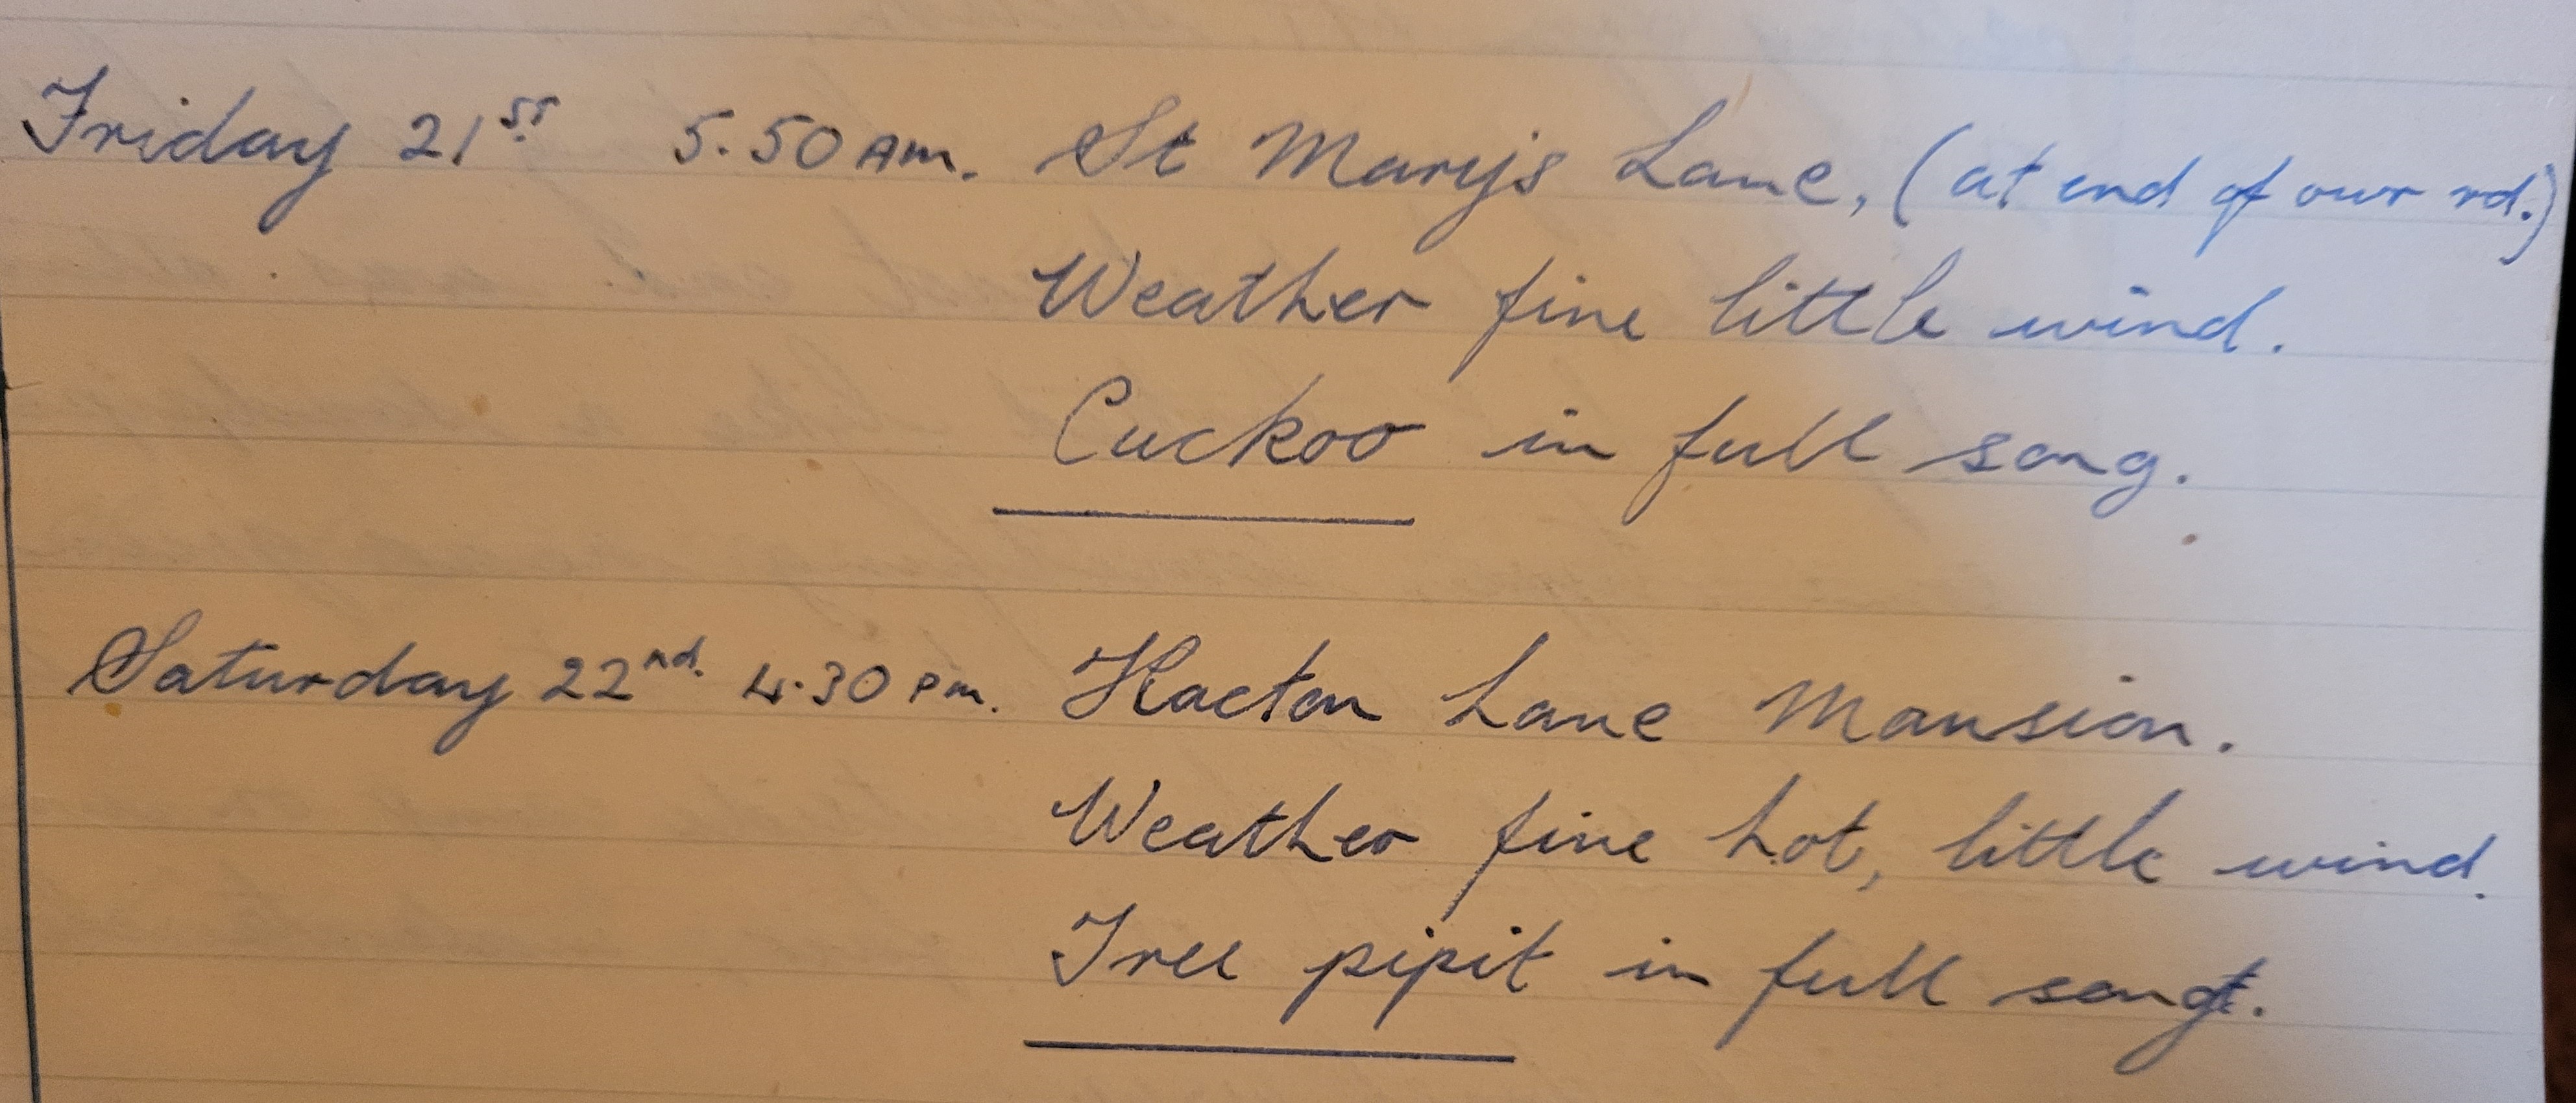 Friday 21st 5.50 AM. St Mary's Lane, (at end of our rd.)
Weather fine little wind.
Cuckoo in full song.
Saturday 22nd. 4.30 PM. Hacton Lane Mansion.
Weather fine hot, little wind.
Tree pipit in full song.